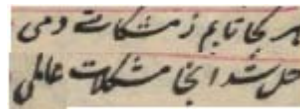 هر کجا تابم ز مشکات دمی
حل شد آنجا مشکلات عالمی